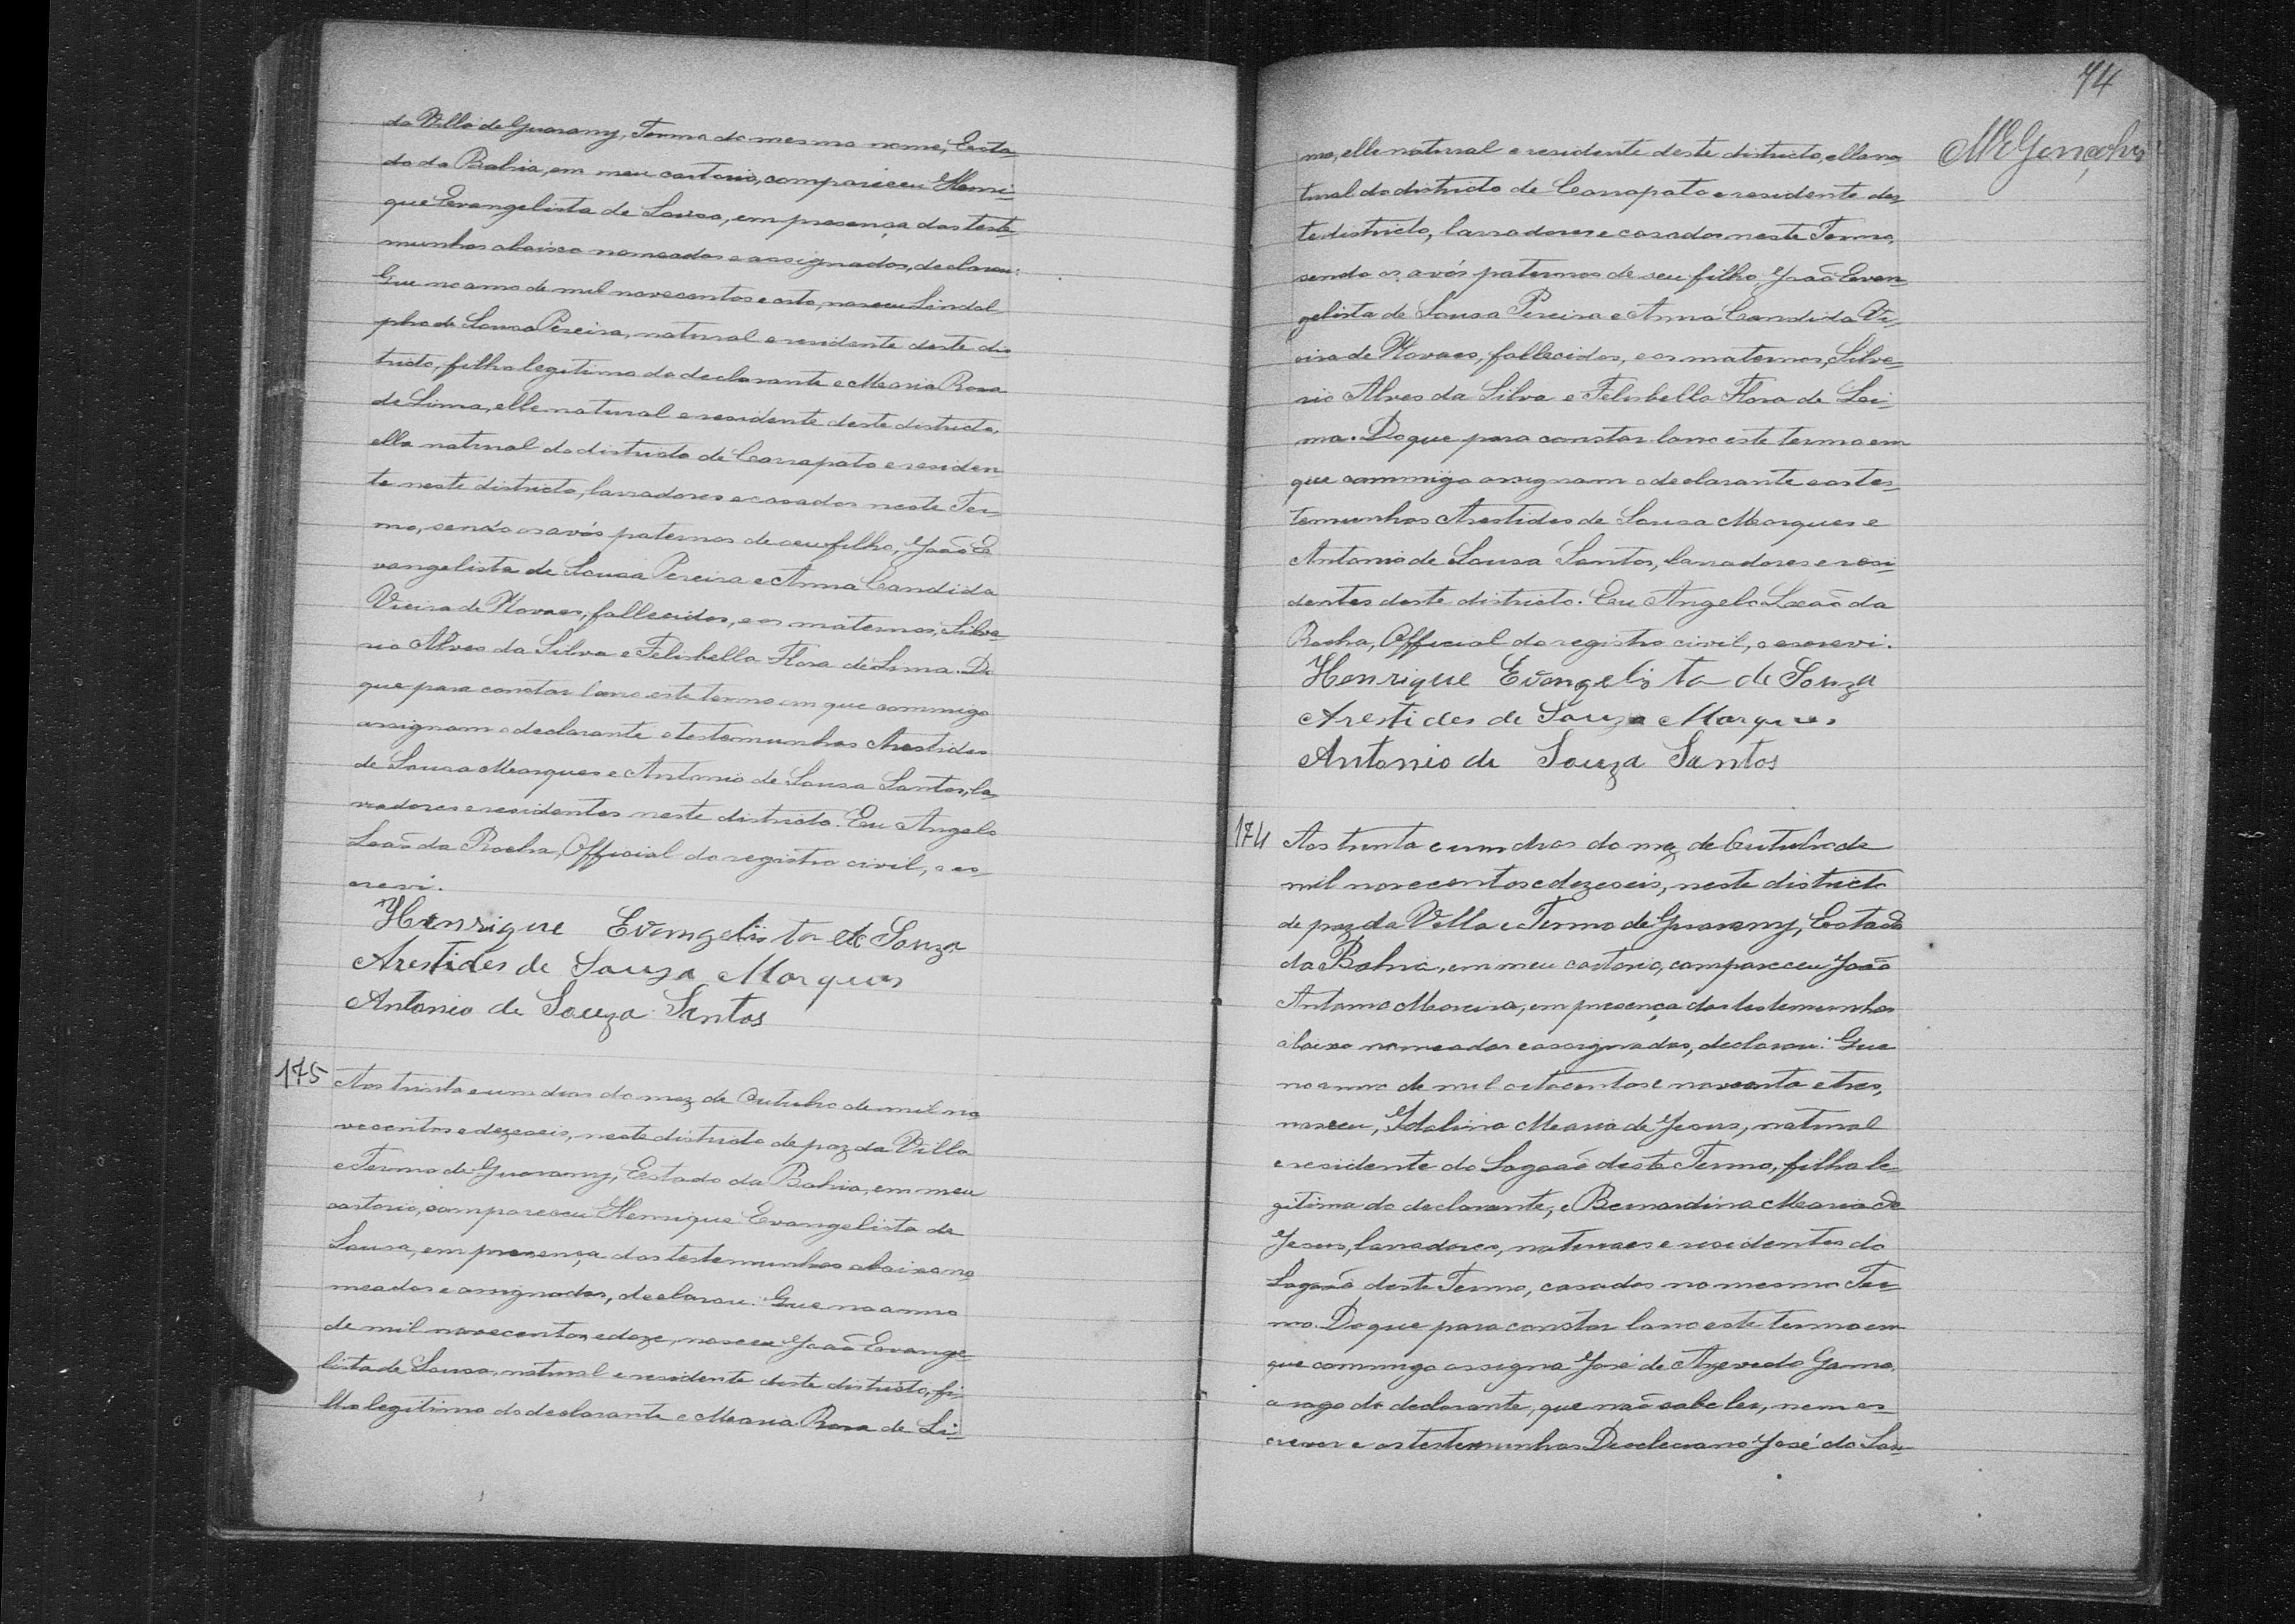 da Villa de Guarany, Termo do mesmo nome, Esta-
do da Bahia, em meu cartorio, compareceu Henri-
que Evangelista de Sousa, em presença das teste-
munhas abaixo nomeadas e assignadas, declarou:
Que no anno de mil novecentos e oito, nasceu Lindol-
pho de Sousa Pereira, natural e residente deste dis
tricto, filho legitimo do declarante e Maria Rosa
de Lima, elle natural e residente deste districto,
ella natural do districto de Carrapato e residen
te neste districto, lavradores e casados neste Ter-
mo, sendo os avós paternos de seu filho, João E
vangelista de Sousa Pereira e Anna Candida
Vieira de Novaes, fallecidos, e os maternos, Silve-
rio Alves da Silva e Felisbella Flora de Lima. Do
que para constar lavro este termo em que commigo
assignam o declarante e testemunhas Arestides
de Sousa Marques e Antonio de Sousa Santos, la-
vradores e residentes neste districto. Eu Angelo
Leão da Rocha, Official do registro civil, o es-
crevi.
Henrique Evangelista de Souza
Arestides de Souza Marques
Antonio de Souza Santos
175 Aos trinta e um dias do mez de Outubro de mil no
vecentos e dezeseis, neste districto de paz da Villa
e Termo de Guarany, Estado da Bahia, em meu
cartorio, compareceu Henrique Evangelista de
Sousa, em presença das testemunhas abaixo no
meadas e assignadas, declarou: Que no anno
de mil novecentos e doze, nasceu João Evange-
lista de Sousa, natural e residente deste districto, fi-
lho legitimo do declarante e Maria Rosa de Li-
74
M E Gonçalves
ma, elle natural e residente deste districto, ella na
tural do districto de Carrapato e residente des
te districto, lavradores e casados neste Termo,
sendo os avós paternos de seu filho, João Evan
gelista de Sousa Pereira e Anna Candida Vi-
eira de Novaes, fallecidos, e os maternos, Silve-
rio Alves da Silva e Felisbella Flora de Lei-
ma. Do que para constar lavro este termo em
que commigo assignam o declarante e as tes-
temunhas Arestides de Sousa Marques e
Antonio de Sousa Santos, lavradores e resi-
dentes deste districto. Eu Angelo Leão da
Rocha, Official do registro civil, o escrevi.
Henrique Evangelista de Souza
Arestides de Souza Marques
Antonio de Souza Santos
174 Aos trinta e um dias do mez de Outubro de
mil novecentos e dezeseis, neste districto
de paz da Villa e Termo de Guarany, Estado
da Bahia, em meu cartorio, compareceu João
Antonio Moreira, em presença das testemunhas
abaixo nomeadas e assignadas, declarou: Que
no anno de mil oitocentos e noventa e tres,
nasceu, Idalina Maria de Jesus, natural
e residente do Lagoão deste Termo, filha le-
gitima do declarante, e Bernardina Maria de
Jesus, lavradores, naturaes e residentes do
Lagoão deste Termo, casados no mesmo Ter-
mo. Do que para constar lavro este termo em
que commigo assigna José de Azevedo Gama,
a rogo do declarante, que não sabe ler, nem es-
crever e as testemunhas Deocleciano José do Sou-